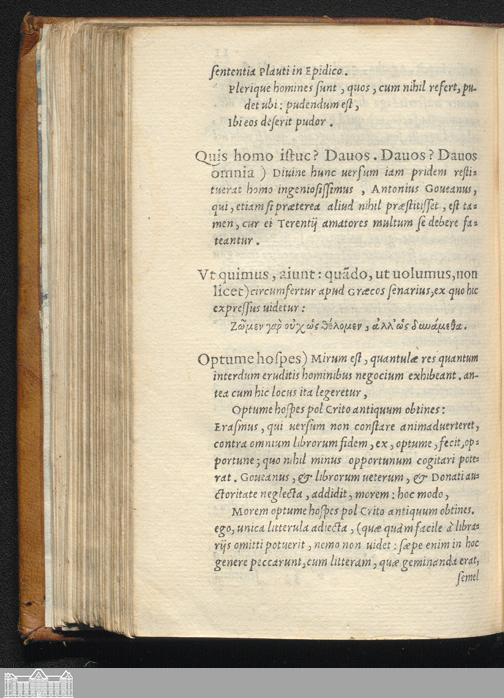 sententia Plauti in Epidico.
Plerique homines sunt, quos, cum nihil refert, pu-
det ubi: pudendum est,
Ibi eos deserit pudor.
Quis homo istuc? Dauos. Dauos? Dauos
omnia) Diuine hunc uersum iam pridem resti-
tuerat homo ingeniosissimus, Antonius Goueanus,
qui, etiam si præterea aliud nihil præstitisset, est ta-
men, cur ei Terentij amatores multum se debere fa-
teantur.
Vt quimus, aiunt: quādo, ut uolumus, non
licet) circumfertur apud Græcos senarius, ex quo hic
expressus uidetur:
Ζῶμεν γὰρ οὐχ ὡς θέλομεν, ἀλλ' ὡς δυνάμεθα.
Optume hospes) Mirum est, quantulæ res quantum
interdum eruditis hominibus negocium exhibeant. an-
tea cum hic locus ita legeretur,
Optume hospes pol Crito antiquum obtines:
Erasmus, qui uersum non constare animaduerteret,
contra omnium librorum fidem, ex, optume, fecit, op-
portune; quo nihil minus opportunum cogitari pote-
rat. Goueanus, & librorum ueterum, & Donati au-
ctoritate neglecta, addidit, morem: hoc modo,
Morem optume hospes pol Crito antiquum obtines.
ego, unica litterula adiecta, (quæ quàm facile à libra-
rijs omitti potuerit, nemo non uidet: sæpe enim in hoc
genere peccarunt, cum litteram, quæ geminanda erat,
semel